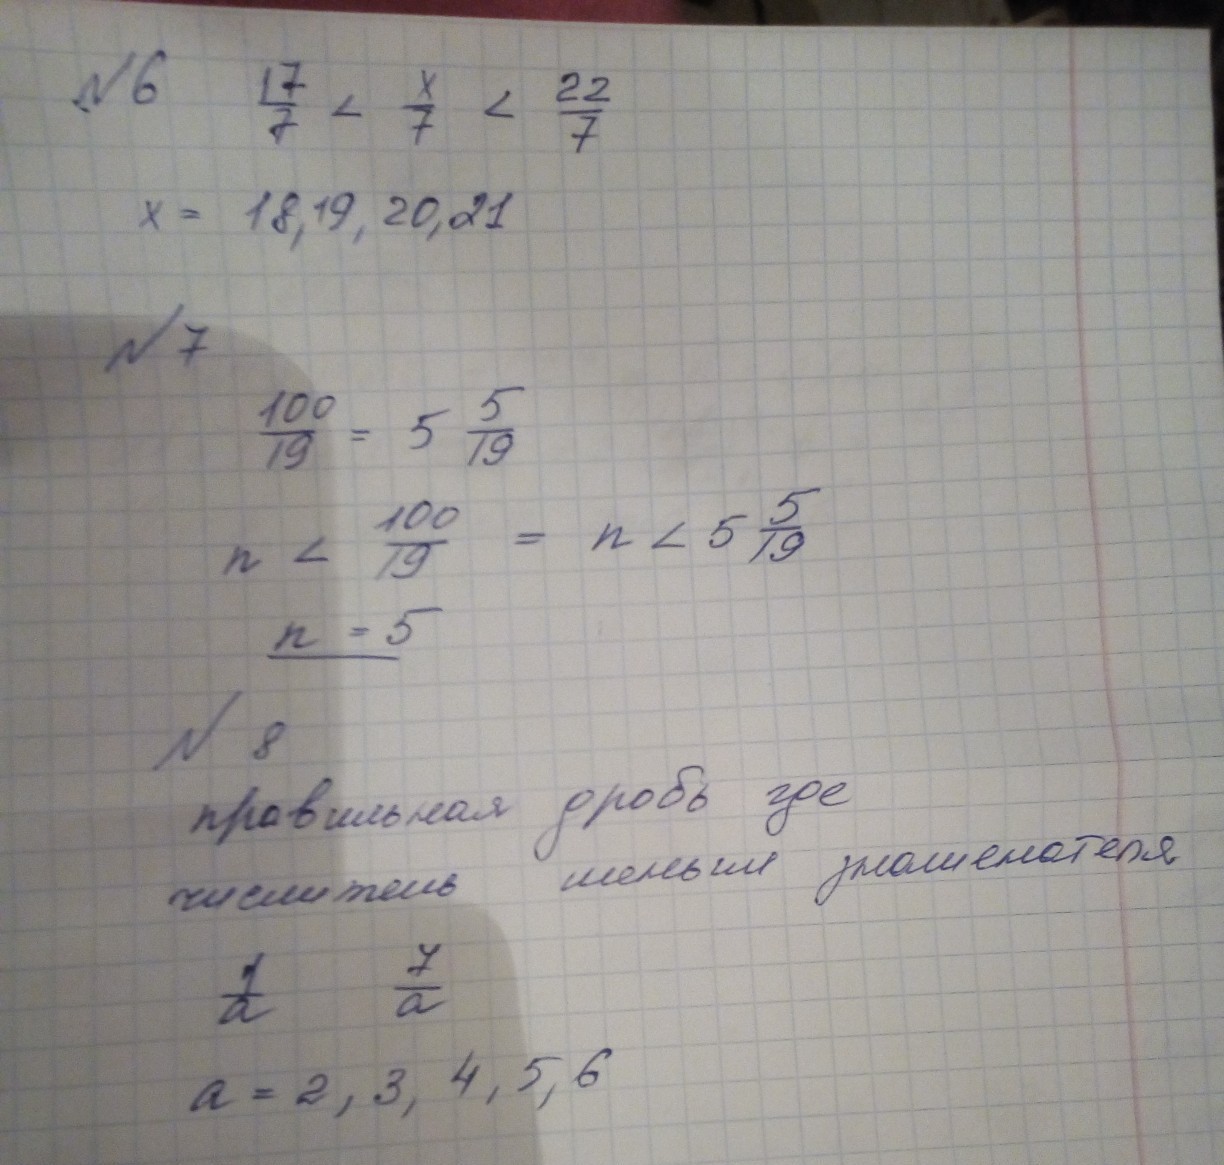 №6 17/7 < x/7 < 22/7
x = 18, 19, 20, 21
№7
100/19 = 5 5/19
n < 100/19 = n < 5 5/19
n = 5
№ 8
правильная дробь где
числитель меньши знаменателя
1/a 7/a
a = 2, 3, 4, 5, 6